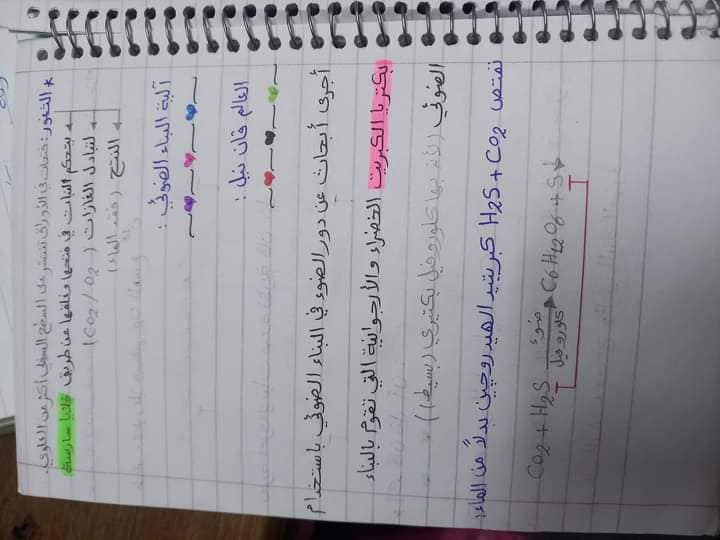 * الثغور: فتحات في الأوراق تنتشر على السطح السفلي أكثر من العلوي.
يتحكم النبات في فتحها وغلقها عن طريق خلايا حارسة
لتبادل الغازات (CO2 / O2)
النتح (فقد الماء)
آلية البناء الضوئي :
العالم فان نيل :
أجرى أبحاث عن دور الضوء في البناء الضوئي باستخدام
بكتريا الكبريت الخضراء والأرجوانية التي تقوم بالبناء
الضوئي (لأنه بها كلوروفيل بكتيري (بسيط))
تمتص H2S + CO2 كبريتيد الهيدروجين بدلاً من الماء:
CO2 + H2S ضوء كلوروفيل C6H12O6 + S